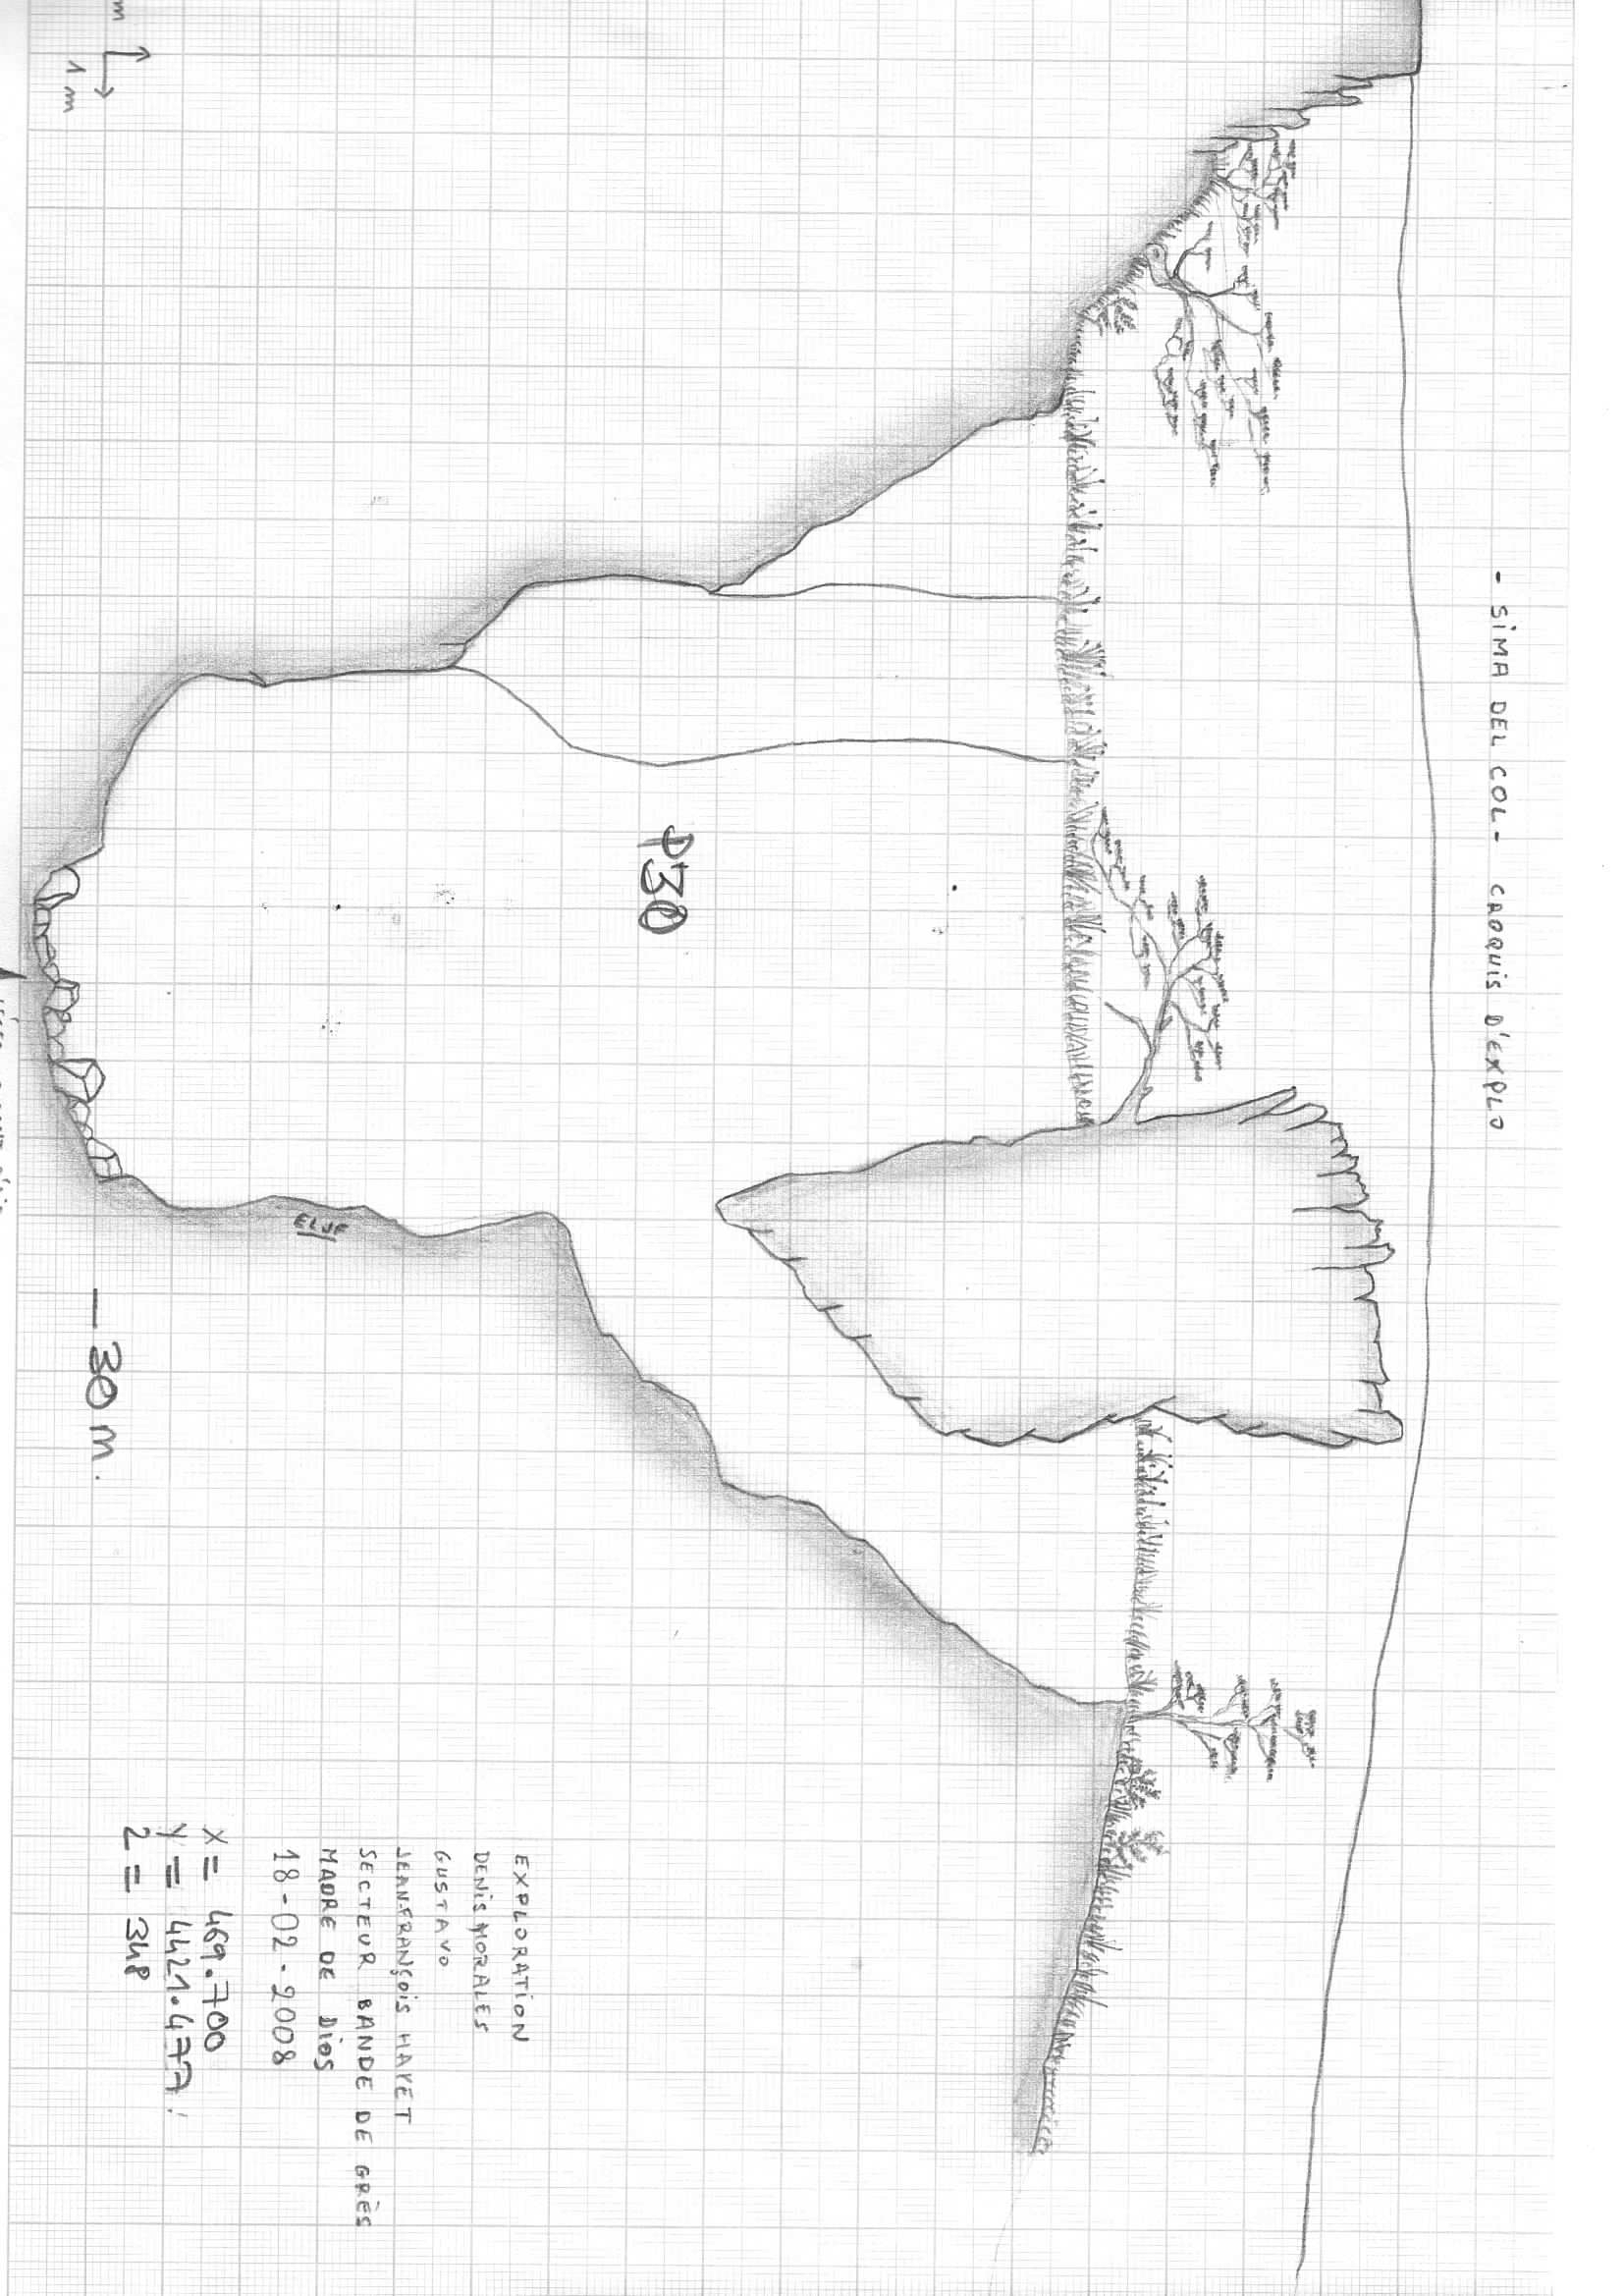 - SIMA DEL COL - CROQUIS D'EXPLO
P30
1 m
m
ELJF
- 30 m.
EXPLORATION
DENIS MORALES
GUSTAVO
JEAN.FRANÇOIS HAYET
SECTEUR BANDE DE GRÈS
MADRE DE DIOS
18-02-2008
X = 469.700
Y = 4421.477.
Z = 348